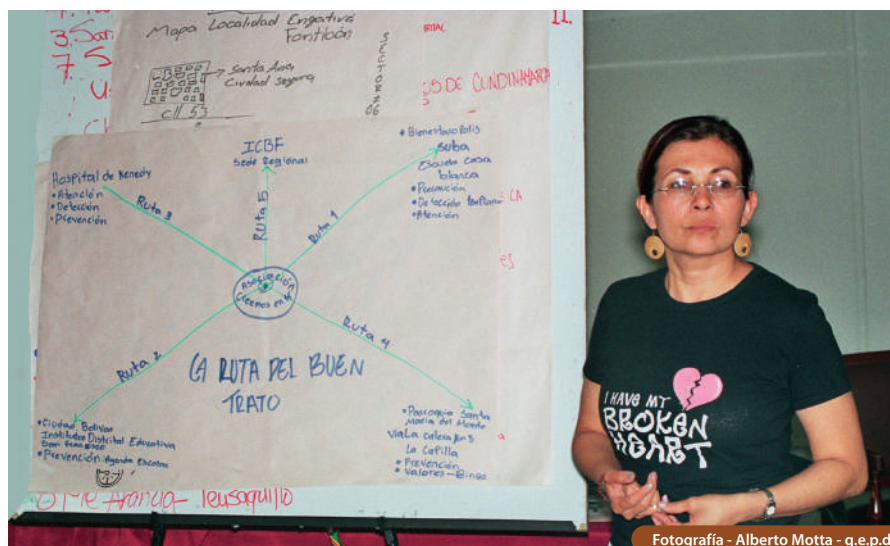 3. San
7. S
U
II.
Mapa Localidad Engativa
Fontibón
Santa Ana,
Ciudad Segura
Cll 53
SECTOR
06
RITAL
OS DE CUNDINAMARCA
S
CA
es
a
ICBF
Sede Regional
Hospital de Kenedy
• Atención
• Detección
• Prevención
Ruta 3
Ruta 5
Ruta 1
Suba
Escuela casa
blanca
• Detección
• Atención
Asociación
Creemos en ti
Ruta 2
Ruta 4
LA RUTA DEL BUEN
TRATO
• Ciudad Bolívar
Distrital Educativa
• Prevención: Agenda Escolar
• Parroquia Santa
María del Monte
La Capilla
• Prevención
• Valores-Bingo
Teusaquillo
I HAVE MY
BROKEN
HEART
Fotografía - Alberto Motta - q.e.p.d